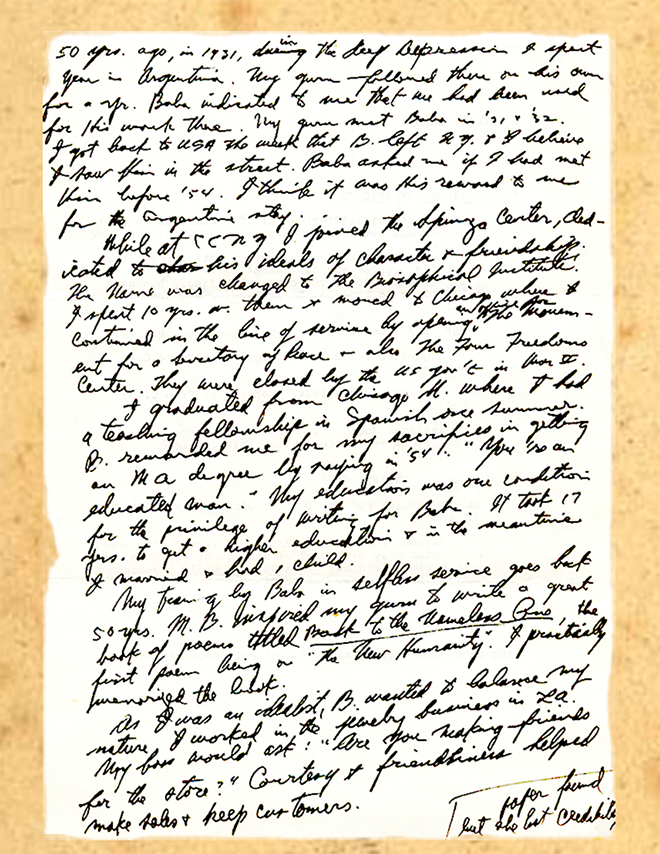 50 yrs. ago, in 1931, during in the deep Depression I spent
year in Argentina. My guru followed there on his own
for a yr. Baba indicated to me that we had been used
for His work there. My guru met Baba in '31 & '32.
I got back to USA the week that B. left N.Y. & I believe
I saw Him in the street. Baba asked me if I had met
Him before '54. I think it was His reward to me
for the Argentine stay.
While at CCNY I joined the Spinoza Center, ded-
icated to his ideals of character & friendship.
The Name was changed to The Biosophical Institute.
I spent 10 yrs. w. them & moved to Chicago where I
continued in the line of service by opening an office for "The Movem-
ent for a Territory of Peace & also The Four Freedoms
Center. They were closed by the US gov't in War II.
I graduated from Chicago U. where I had
a teaching fellowship in Spanish one summer.
B. rewarded me for my sacrifices in getting
an MA degree by saying in '54: "You're an
educated man." My education was one condition
for the privilege of writing for Baba. It took 17
yrs. to get a higher education & in the meantime
I married & had 1 child.
My training by Baba in selfless service goes back
50 yrs. M.B. inspired my guru to write a great
book of poems titled Book to the Nameless One, the
first poem being on "the New Humanity". I practically
memorized the book.
As I was an idealist, B. wanted to balance my
nature. I worked in the jewelry business in L.A.
My boss would ask: "Are you making friends
for the store?" Courtesy & friendliness helped
make sales & keep customers.
paper found
but she lost credibility